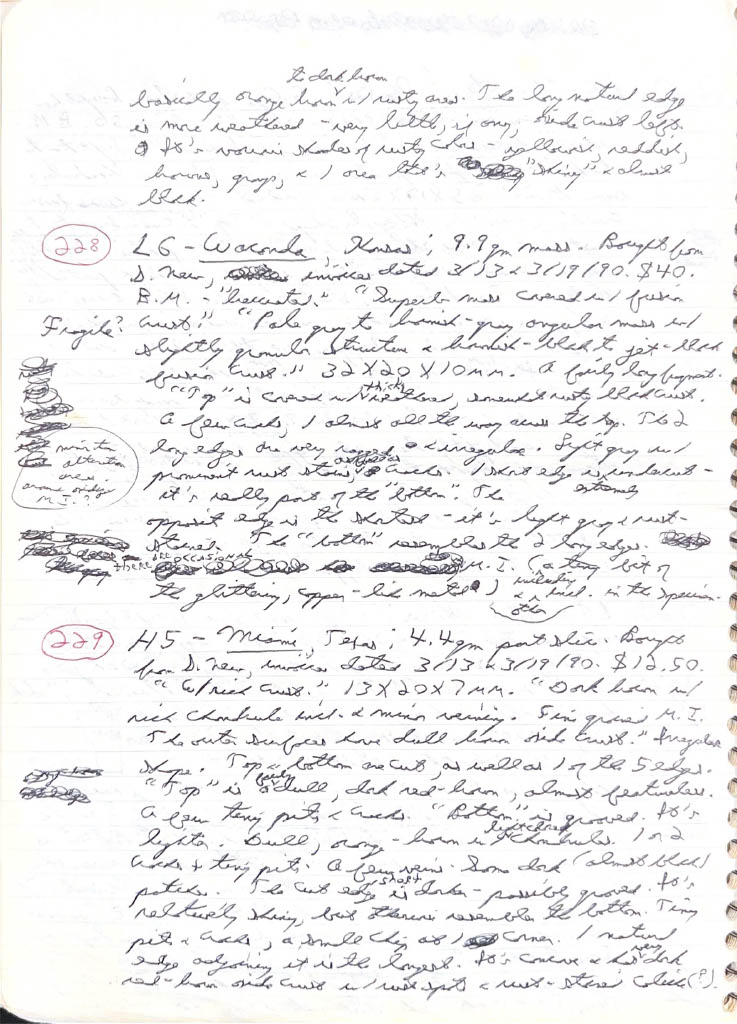 to dark brown
basically orange brown w/ rusty areas. The long natural edge
is more weathered - very little, if any, oxide crust left.
It's various shades of rusty color - yellowish, reddish,
browns, grays, & 1 area that's "shiny" & almost
black.
228 L6 - Waconda, Kansas; 9.9 gm mass. Bought from
D. New, invoices dated 3/13 & 3/19/90. $40.
B.M. - "brecciated." "Superb mass covered w/ fusion
Fragile? crust." "Pale gray to brownish-gray angular mass w/
slightly granular structure & brownish-black to jet-black
fusion crust." 32 X 20 X 10 mm. A fairly long fragment.
"Top" is covered w/ thick weathered, somewhat rusty black crust.
A few cracks, 1 almost all the way across the top. The 2
long edges are very rough & irregular. Light gray w/
prominent rust stains, & cracks. 1 short edge is extremely undercut -
it's really part of the "bottom". The
opposite edge is the shortest - it's light gray & rust-
stained. The "bottom" resembles the 2 long edges.
there are occasional M.I. (a tiny bit of
the glittering, copper-like metal) including & other incl. in the specimen.
attention
area
around edges
M.I.?
229 H5 - Miami, Texas; 4.4 gm part slice. Bought
from D. New, invoices dated 3/13 & 3/19/90. $12.50.
"W/ nice crust." 13 X 20 X 7 mm. "Dark brown w/
rich chondrule incl. & minor veining. Fine grained M.I.
The outer surfaces have dull brown oxide crust." Irregular
shape. Top & bottom are cut, as well as 1 of the 5 edges.
"Top" is fairly dull, dark red-brown, almost featureless.
A few tiny pits & cracks. "Bottom" is grooved. It's
lighter. Dull, orange-brown w/ light & dark chondrules. 1 or 2
cracks & tiny pits. A few veins. Some dark (almost black)
patches. The cut edge is short & darker - possibly grooved. It's
relatively shiny, but otherwise resembles the bottom. Tiny
pits & cracks, a small chip at 1 corner. 1 natural
edge adjoining it is the longest. It's concave & has very dark
red-brown oxide crust w/ rust spots & rust-stained (?).